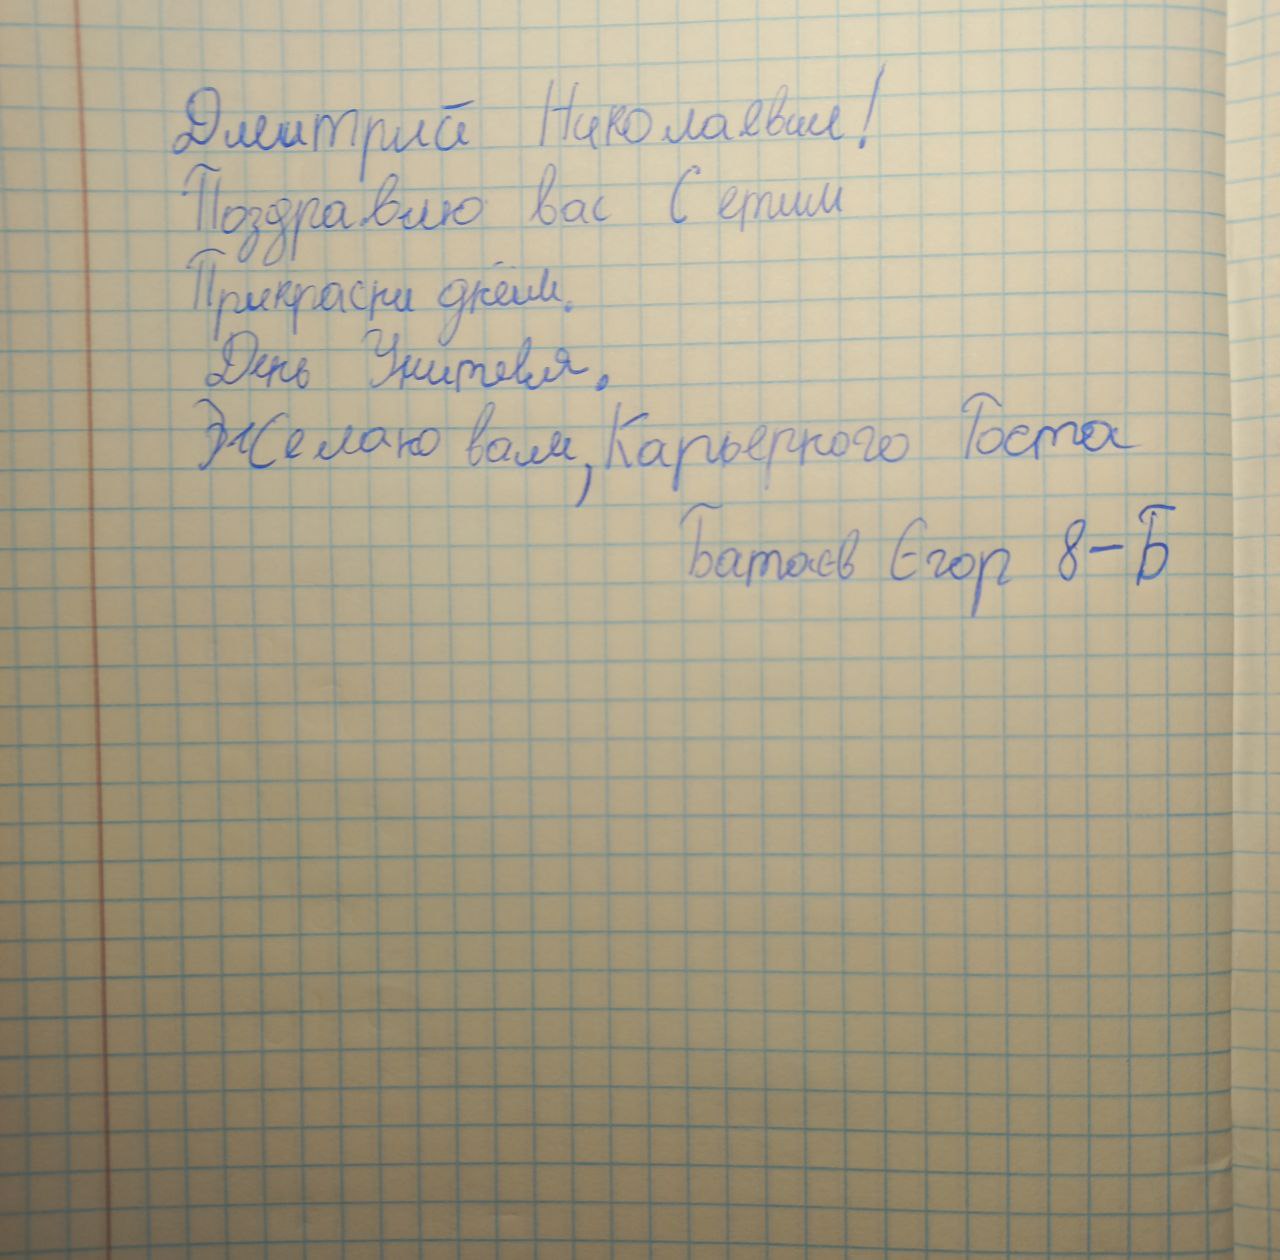 Дмитрий Николаевич!
Поздравлю вас С етим
Прикрасни днём.
День Учителя.
Желаю вам, Карьерного Госта
Батаев Егор 8-Б